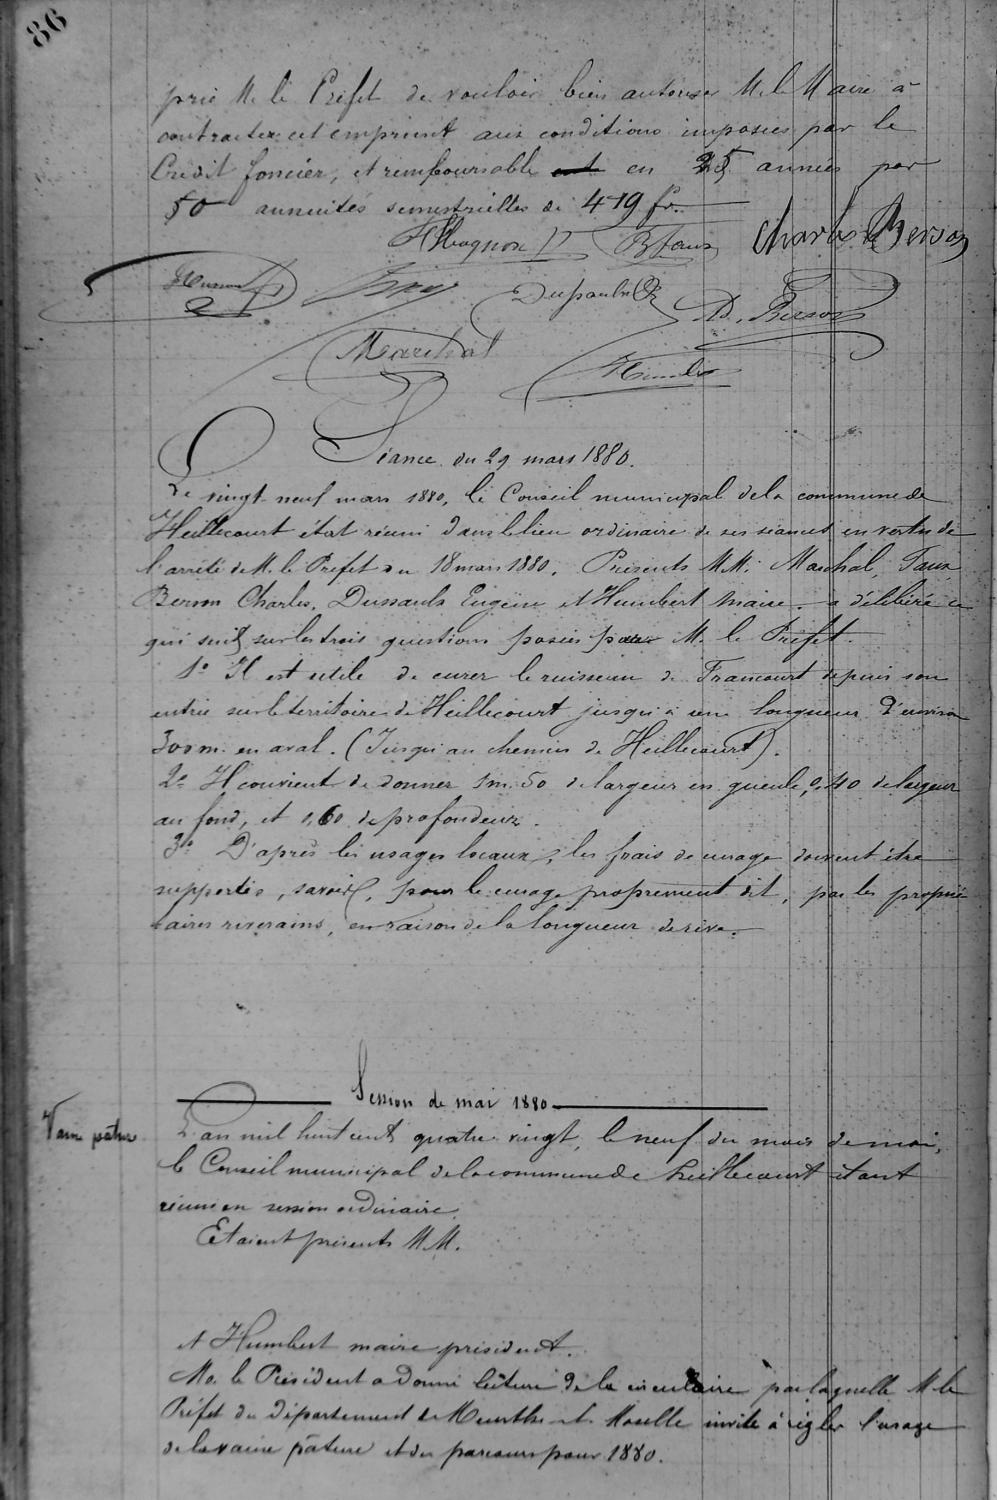 86
prie M. le Préfet de vouloir bien autoriser M. le Maire à
contracter cet emprunt aux conditions imposées par le
Crédit foncier, et remboursable en 25 années par
50 annuités semestrielles de 419 fr.
Charles Berson
Ad. Berson
Marchal
Humbert
Séance du 29 mars 1880.
Le vingt neuf mars 1880, le Conseil municipal de la commune de
Heillecourt était réuni dans le lieu ordinaire de ses séances en vertu de
l'arrêté de M. le Préfet du 18 mars 1880. Présents MM. Marchal, Faux
Berson Charles, Dussaulx Eugène et Humbert maire. a délibéré ce
qui suit sur les trois questions posées par M. le Préfet.
1° Il est utile de curer le ruisseau de Frarcourt depuis son
entrée sur le territoire de Heillecourt jusqu'à une longueur d'environ
300 m. en aval. (Jusqu'au chemin de Heillecourt).
2° Il convient de donner 1m.50 de largeur en gueule, 0,40 de largeur
au fond, et 0,60 de profondeur.
3° D'après les usages locaux, les frais de curage doivent être
supportés, savoir, pour le curage proprement dit, par les proprié-
taires riverains, en raison de la longueur de rive.
Session de mai 1880
Vaine pâture
L'an mil huit cent quatre vingt, le neuf du mois de mai,
le Conseil municipal de la commune de heillecourt étant
réuni en session ordinaire.
Etaient présents MM.
et Humbert maire président.
Mo. le Président a donné lecture de la circulaire par laquelle M. le
Préfet du département de Meurthe et Moselle invite à régler l'usage
de la vaine pâture et du parcours pour 1880.